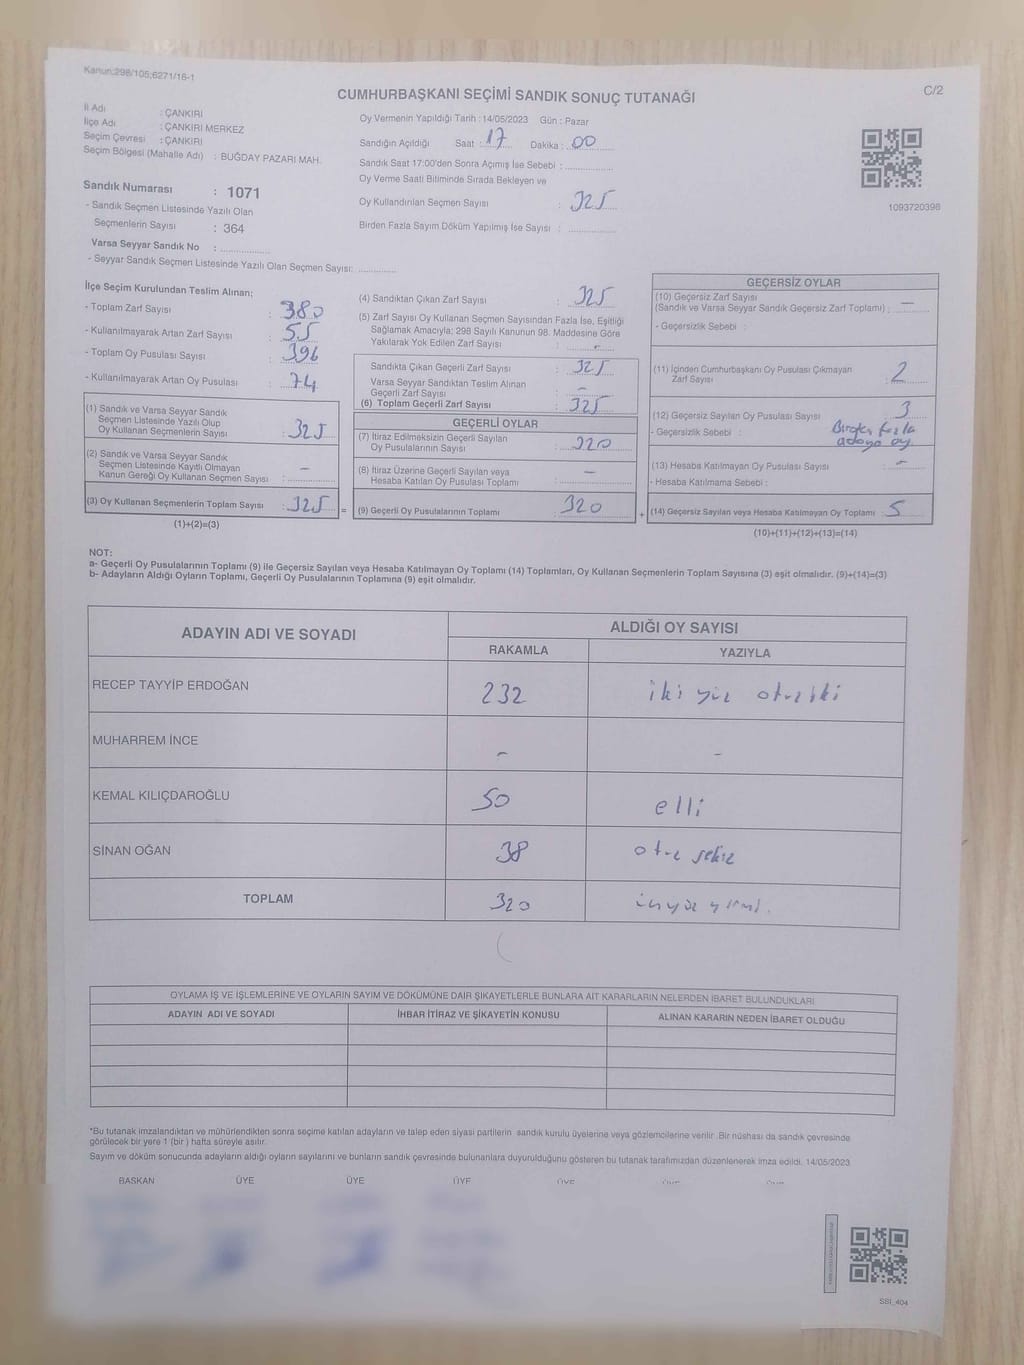 Kanun:298/105;6271/16-1
C/2
CUMHURBAŞKANI SEÇİMİ SANDIK SONUÇ TUTANAĞI
İl Adı : ÇANKIRI
İlçe Adı : ÇANKIRI MERKEZ
Seçim Çevresi : ÇANKIRI
Seçim Bölgesi (Mahalle Adı) : BUĞDAY PAZARI MAH.
Sandık Numarası : 1071
- Sandık Seçmen Listesinde Yazılı Olan
Seçmenlerin Sayısı : 364
Varsa Seyyar Sandık No :
- Seyyar Sandık Seçmen Listesinde Yazılı Olan Seçmen Sayısı:
Oy Vermenin Yapıldığı Tarih : 14/05/2023 Gün : Pazar
Sandığın Açıldığı Saat : 17 Dakika : 00
Sandık Saat 17:00'den Sonra Açımış İse Sebebi :
Oy Verme Saati Bitiminde Sırada Bekleyen ve
Oy Kullandırılan Seçmen Sayısı : 325
Birden Fazla Sayım Döküm Yapılmış İse Sayısı :
1093720396
İlçe Seçim Kurulundan Teslim Alınan;
- Toplam Zarf Sayısı : 380
- Kullanılmayarak Artan Zarf Sayısı : 55
- Toplam Oy Pusulası Sayısı : 396
- Kullanılmayarak Artan Oy Pusulası : 74
(1) Sandık ve Varsa Seyyar Sandık
Seçmen Listesinde Yazılı Olup
Oy Kullanan Seçmenlerin Sayısı : 325
(2) Sandık ve Varsa Seyyar Sandık
Seçmen Listesinde Kayıtlı Olmayan
Kanun Gereği Oy Kullanan Seçmen Sayısı : –
(3) Oy Kullanan Seçmenlerin Toplam Sayısı : 325 =
(1)+(2)=(3)
(4) Sandıktan Çıkan Zarf Sayısı : 325
(5) Zarf Sayısı Oy Kullanan Seçmen Sayısından Fazla İse, Eşitliği
Sağlamak Amacıyla; 298 Sayılı Kanunun 98. Maddesine Göre
Yakılarak Yok Edilen Zarf Sayısı : -
Sandıkta Çıkan Geçerli Zarf Sayısı : 325
Varsa Seyyar Sandıktan Teslim Alınan
Geçerli Zarf Sayısı : -
(6) Toplam Geçerli Zarf Sayısı : 325
GEÇERLİ OYLAR
(7) İtiraz Edilmeksizin Geçerli Sayılan
Oy Pusulasının Sayısı : 320
(8) İtiraz Üzerine Geçerli Sayılan veya
Hesaba Katılan Oy Pusulası Toplamı : –
(9) Geçerli Oy Pusulalarının Toplamı : 320 +
GEÇERSİZ OYLAR
(10) Geçersiz Zarf Sayısı
(Sandık ve Varsa Seyyar Sandık Geçersiz Zarf Toplamı) : –
- Geçersizlik Sebebi :
(11) İçinden Cumhurbaşkanı Oy Pusulası Çıkmayan
Zarf Sayısı : 2
(12) Geçersiz Sayılan Oy Pusulası Sayısı : 3
- Geçersizlik Sebebi : fazla
adaya oy.
(13) Hesaba Katılmayan Oy Pusulası Sayısı : -
- Hesaba Katılmama Sebebi :
(14) Geçersiz Sayılan veya Hesaba Katılmayan Oy Toplamı : 5
(10)+(11)+(12)+(13)=(14)
NOT:
a- Geçerli Oy Pusulalarının Toplamı (9) ile Geçersiz Sayılan veya Hesaba Katılmayan Oy Toplamı (14) Toplamları, Oy Kullanan Seçmenlerin Toplam Sayısına (3) eşit olmalıdır. (9)+(14)=(3)
b- Adayların Aldığı Oyların Toplamı, Geçerli Oy Pusulalarının Toplamına (9) eşit olmalıdır.
ADAYIN ADI VE SOYADI
ALDIĞI OY SAYISI
RAKAMLA YAZIYLA
RECEP TAYYİP ERDOĞAN 232 iki yüz otuz iki
MUHARREM İNCE - -
KEMAL KILIÇDAROĞLU 50 elli
SİNAN OĞAN 38 otuz sekiz
TOPLAM 320 üçyüz yirmi.
OYLAMA İŞ VE İŞLEMLERİNE VE OYLARIN SAYIM VE DÖKÜMÜNE DAİR ŞİKAYETLERLE BUNLARA AİT KARARLARIN NELERDEN İBARET BULUNDUKLARI
ADAYIN ADI VE SOYADI İHBAR İTİRAZ VE ŞİKAYETİN KONUSU ALINAN KARARIN NEDEN İBARET OLDUĞU
*Bu tutanak imzalandıktan ve mühürlendikten sonra seçime katılan adayların ve talep eden siyasi partilerin sandık kurulu üyelerine veya gözlemcilerine verilir .Bir nüshası da sandık çevresinde
görülecek bir yere 1 (bir ) hafta süreyle asılır.
Sayım ve döküm sonucunda adayların aldığı oyların sayılarını ve bunların sandık çevresinde bulunanlara duyurulduğunu gösteren bu tutanak tarafımızdan düzenlenerek imza edildi. 14/05/2023
BAŞKAN ÜYE ÜYE ÜYE ÜYE
SSI_404